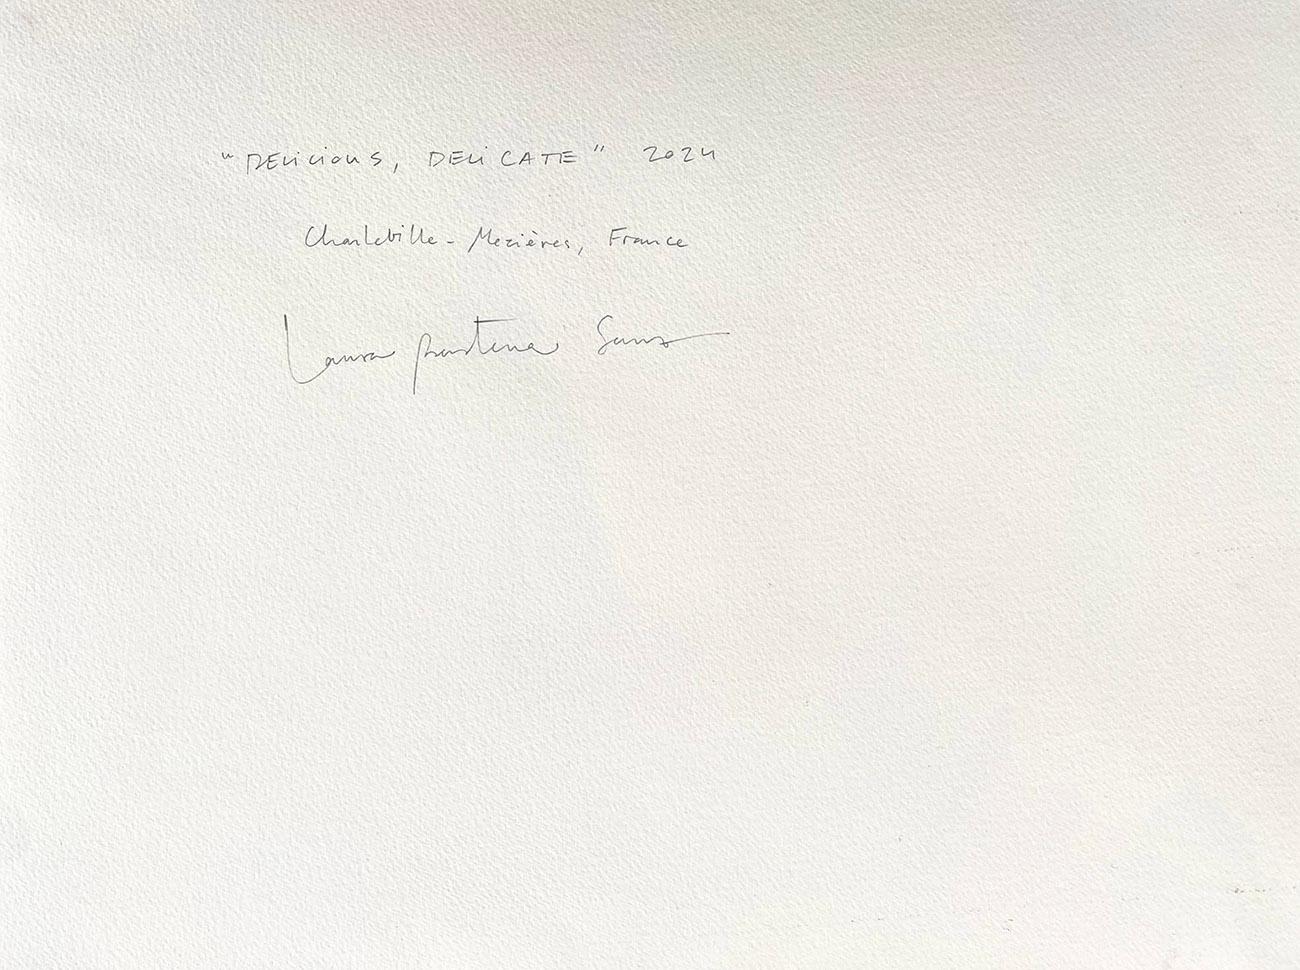 "DELICIOUS, DELICATE" 2024
Charlebille - Mezières, France
Laura Sanz